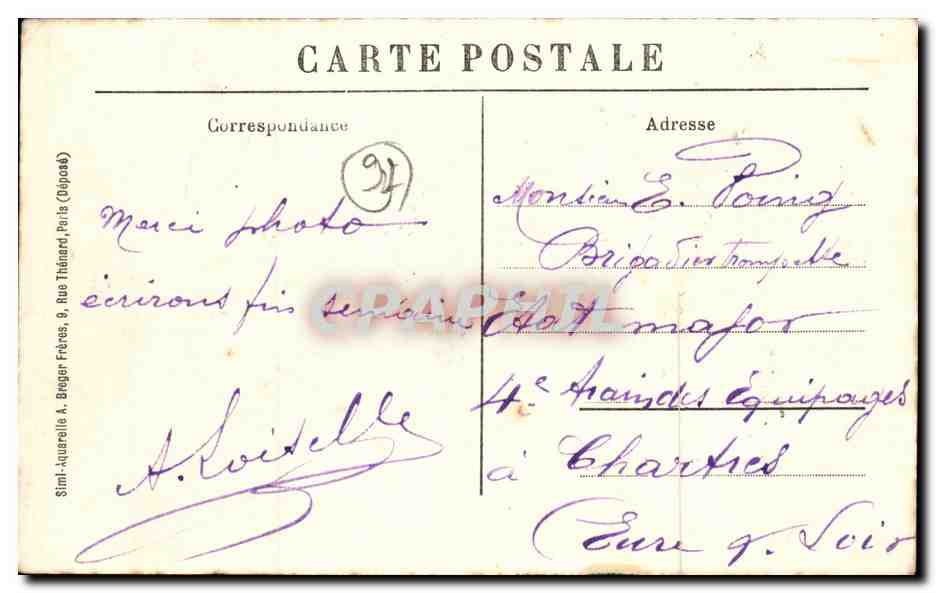 CARTE POSTALE
Correspondance
Adresse
Simi-Aquarelle A. Breger Frères, 9, Rue Thénard, Paris (Déposé)
Merci photo
écrirons fin semaine
A. Loiselle
Monsieur E. Poing
Brigadier trompette
Etat major
4e train des équipages
à Chartres
Eure & Loir
CPAPHIL